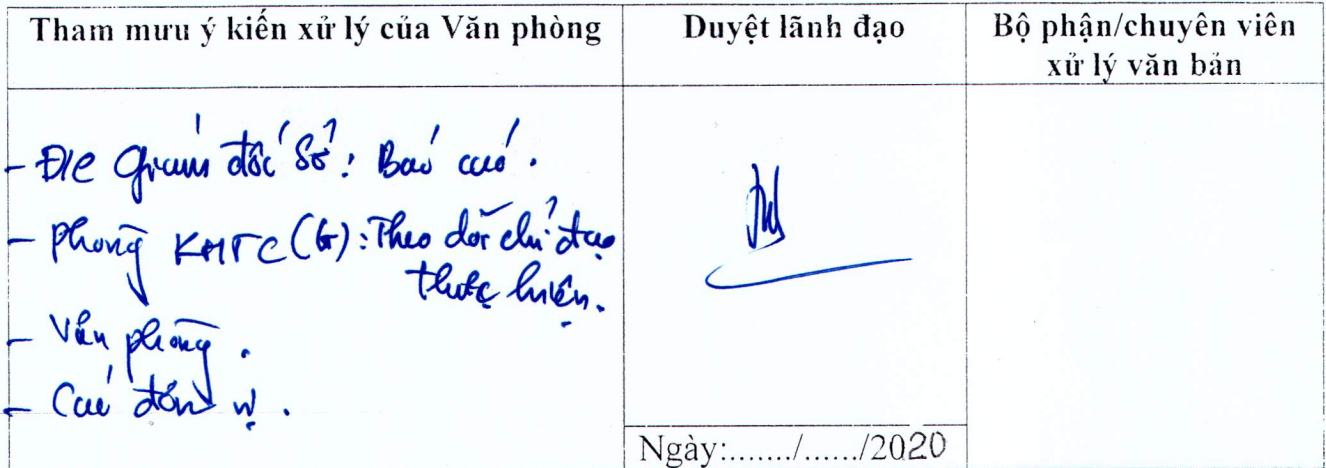 Tham mưu ý kiến xử lý của Văn phòng
Duyệt lãnh đạo
Bộ phận/chuyên viên
xử lý văn bản
- Đ/c Giám đốc Sở: Báo cáo.
- Phòng KHTC (G): Theo dõi chỉ đạo
thực hiện.
- Văn phòng.
- Các đơn vị.
Ngày:......./....../2020